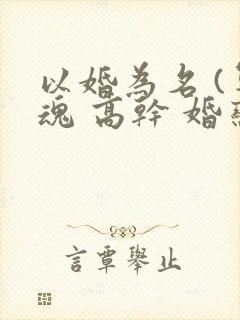 以婚為名 (
魂 高幹 婚
言覃舉止